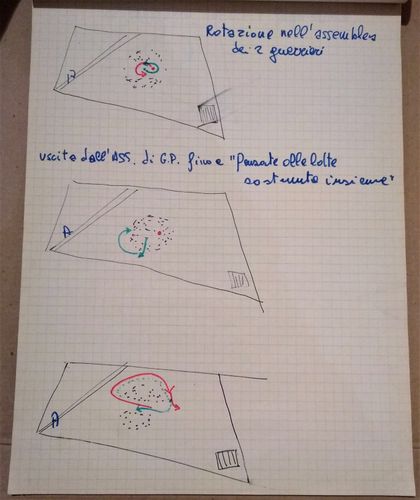 Rotazione nell'assemblea
dei 2 guerrieri
A
uscita dall'ASS. di G.P. fino a "Pensate alle lotte
sostenute insieme"
A
A